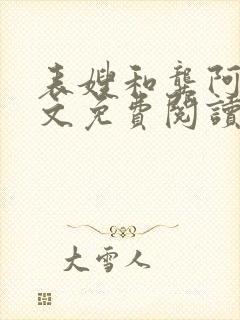 表嫂和龔阿
文免費閱讀
大雪人